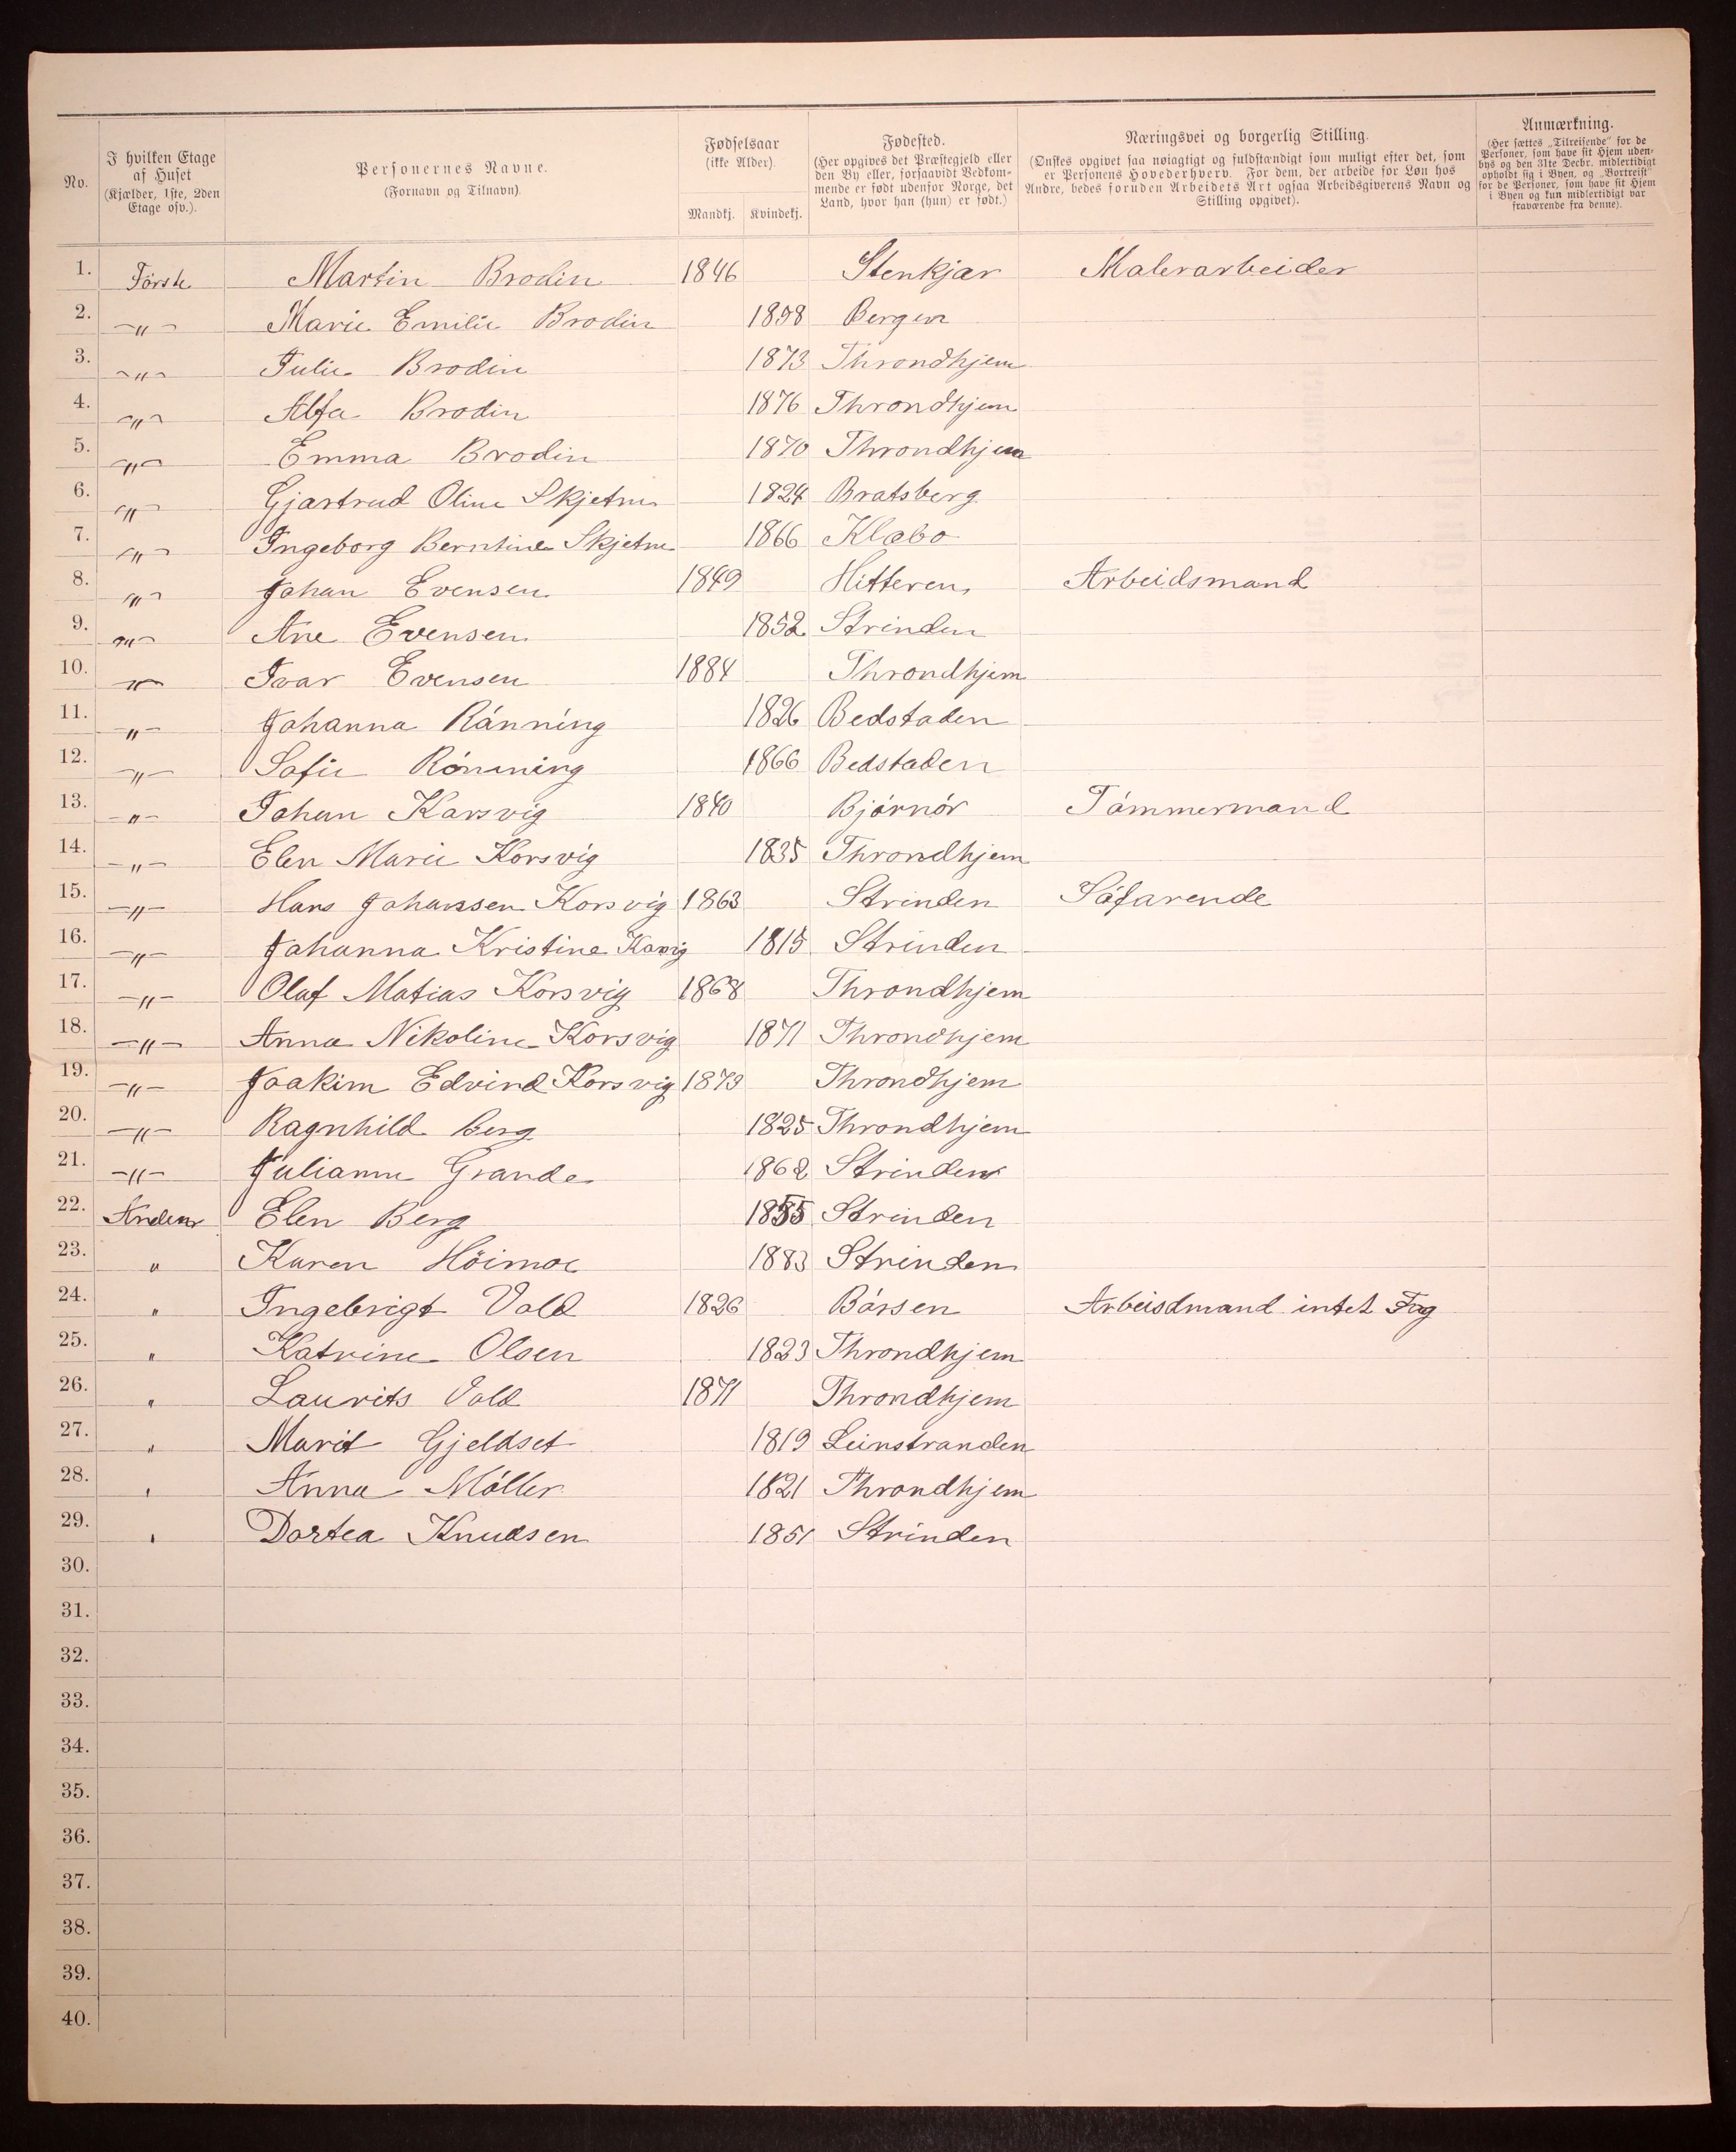 No.
I hvilken Etage
af Huset
(Kjælder, 1ste, 2den
Etage osv.).
Personernes Navne.
(Fornavn og Tilnavn).
Fødselsaar
(ikke Alder).
Mandkj. Kvindekj.
Fødested.
(Her opgives det Præstegjeld eller
den By eller, forsaavidt Vedkom-
mende er født udenfor Norge, det
Land, hvor han (hun) er født.)
Næringsvei og borgerlig Stilling.
(Ønskes opgivet saa nøiagtigt og fuldstændigt som muligt efter det, som
er Personens Hovederhverv. For dem, der arbeide for Løn hos
Andre, bedes foruden Arbeidets Art ogsaa Arbeidsgiverens Navn og
Stilling opgivet).
Anmærkning.
(Her sættes „Tilreisende" for de
Personer, som have sit Hjem uden-
bys og den 31te Decbr. midlertidigt
opholdt sig i Byen, og „Bortreist"
for de Personer, som have sit Hjem
i Byen og kun midlertidigt var
fraværende fra denne).
1. Förste Martin Brodin 1846 Stenkjær Malerarbeider
2. -"- Marie Emilie Brodin 1858 Bergen
3. -"- Julie Brodin 1873 Throndhjem
4. -"- Alfa Brodin 1876 Throndhjem
5. -"- Emma Brodin 1870 Throndhjem
6. -"- Gjartrud Oline Skjetne 1824 Bratsberg
7. -"- Ingeborg Berntine Skjetne 1866 Klæbo
8. -"- Johan Evensen 1849 Hitteren Arbeidsmand
9. -"- Ane Evensen 1852 Strinden
10. -"- Ivar Evensen 1884 Throndhjem
11. -"- Johanna Rånning 1826 Bedstaden
12. -"- Sofie Rónning 1866 Bedstaden
13. -"- Johan Korsvig 1840 Bjórnór Tómmermand
14. -"- Elen Marie Korsvig 1835 Throndhjem
15. -"- Hans Johanssen Korsvig 1863 Strinden Sófarende
16. -"- Johanna Kristine Korsvig 1815 Strinden
17. -"- Olaf Matias Korsvig 1868 Throndhjem
18. -"- Anna Nikoline Korsvig 1871 Throndhjem
19. -"- Joakim Edvind Korsvig 1873 Throndhjem
20. -"- Ragnhild Berg 1825 Throndhjem
21. -"- Julianne Grande 1862 Strinden
22. Anden Elen Berg 1855 Strinden
23. " Karen Höimoe 1883 Strinden
24. " Ingebrigt Vold 1826 Bórsen Arbeisdmand intet Fag
25. " Katrine Olsen 1823 Throndhjem
26. " Laurits Vold 1871 Throndhjem
27. " Marit Gjeldset 1819 Leinstranden
28. " Anna Móller 1821 Throndhjem
29. " Dortea Knudsen 1851 Strinden
30.
31.
32.
33.
34.
35.
36.
37.
38.
39.
40.